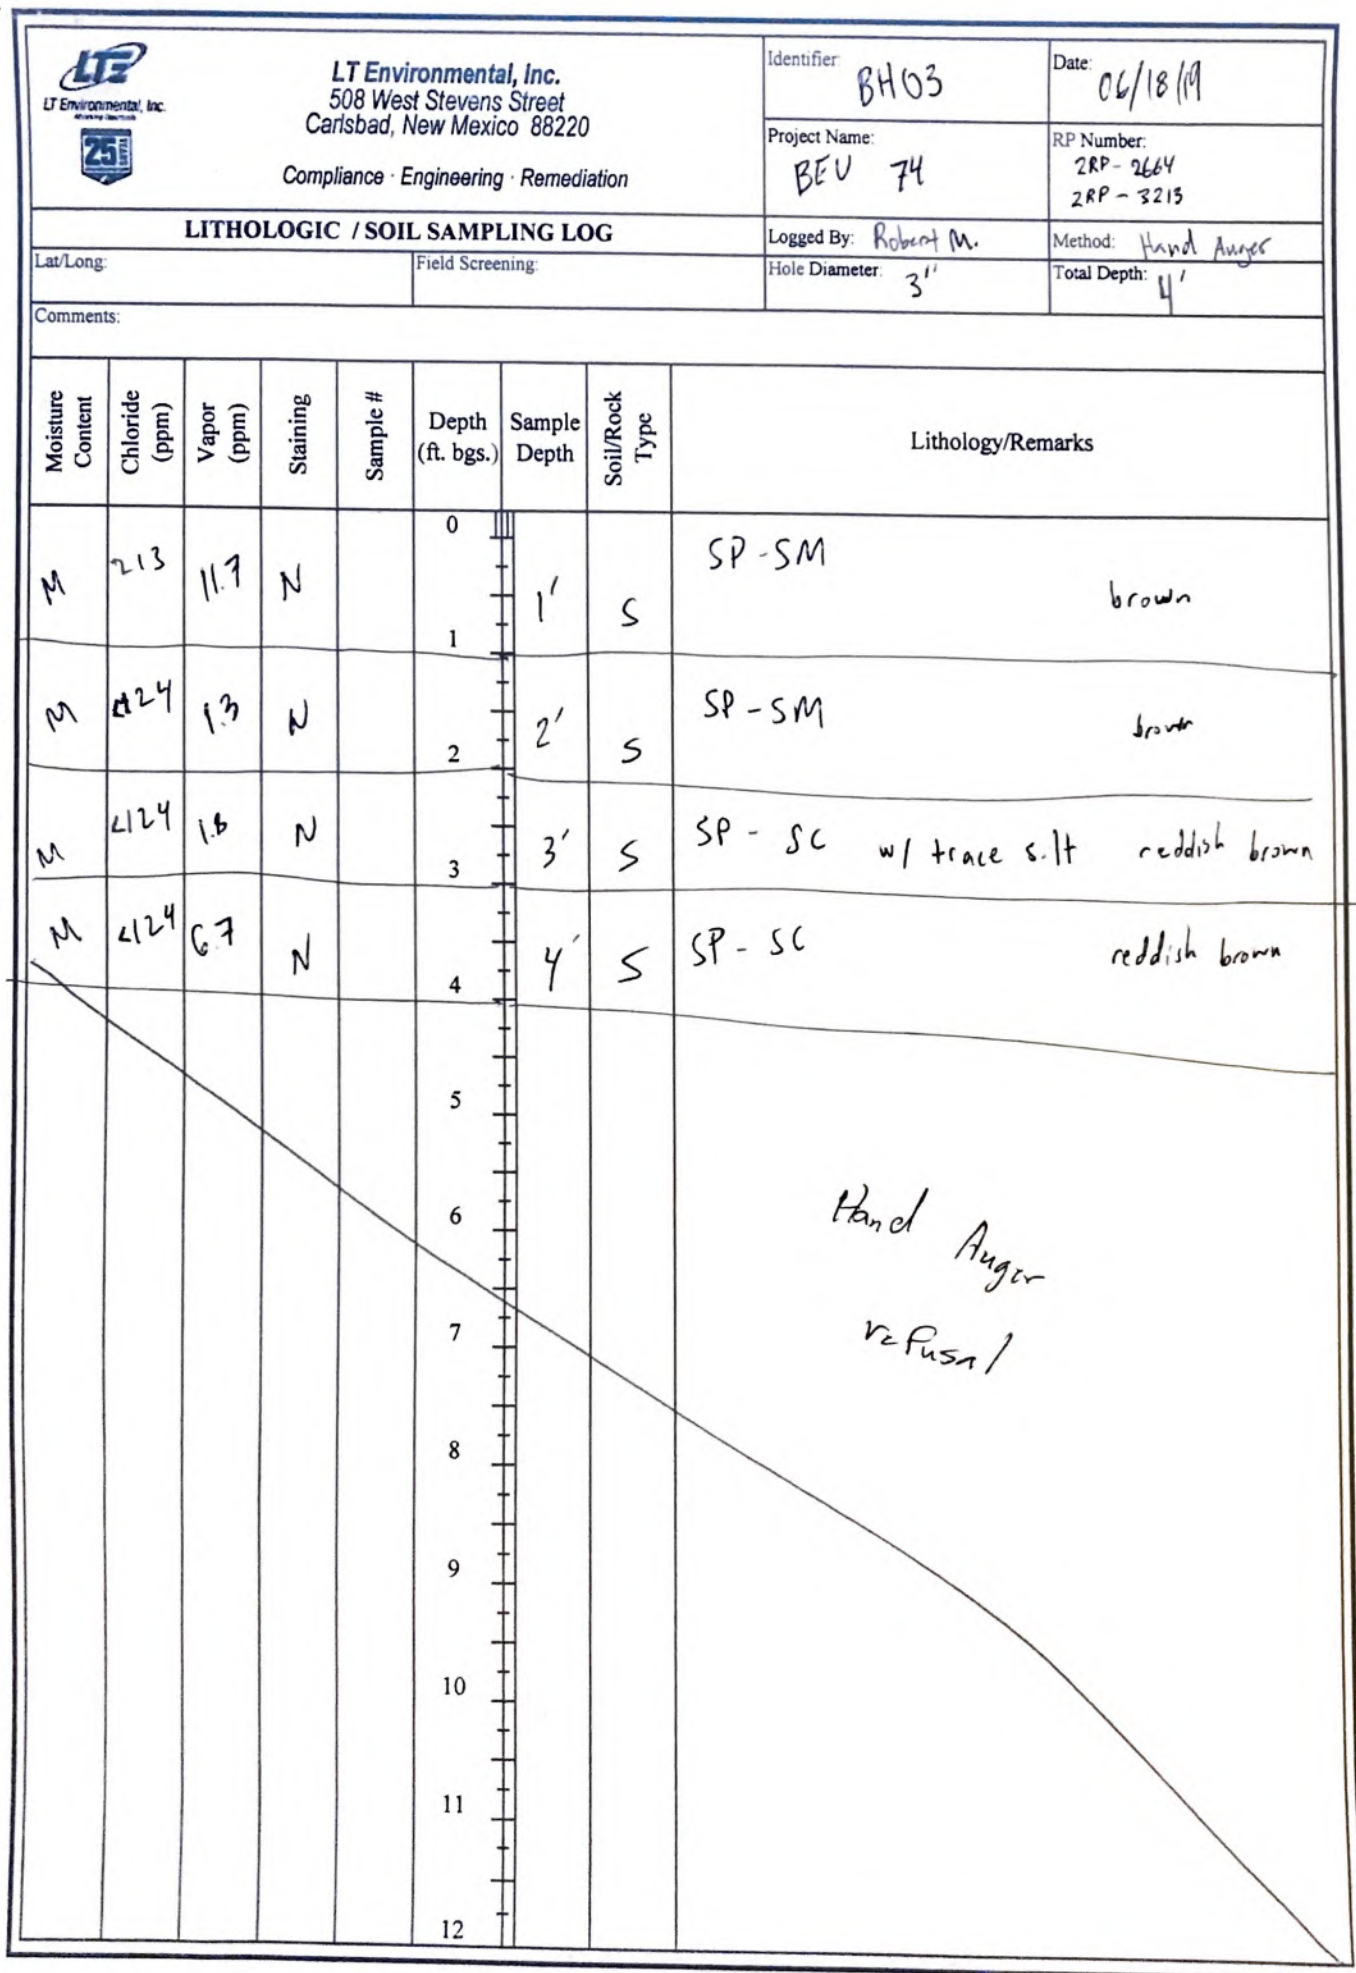 LTE
LT Environmental, Inc.
25 YEARS
LT Environmental, Inc.
508 West Stevens Street
Carlsbad, New Mexico 88220
Compliance · Engineering · Remediation
Identifier: BH03
Date: 06/18/19
Project Name: BEU 74
RP Number:
2RP-2664
2RP-3213
LITHOLOGIC / SOIL SAMPLING LOG
Logged By: Robert M.
Method: Hand Auger
Lat/Long:
Field Screening:
Hole Diameter: 3"
Total Depth: 4'
Comments:
Moisture Content
Chloride (ppm)
Vapor (ppm)
Staining
Sample #
Depth (ft. bgs.)
Sample Depth
Soil/Rock Type
Lithology/Remarks
0
M 213 11.7 N 1' S SP-SM brown
1
M <124 1.3 N 2' S SP-SM brown
2
M <124 1.8 N 3' S SP - SC w/ trace silt reddish brown
3
M <124 6.7 N 4' S SP - SC reddish brown
4
5
6
Hand Auger
refusal
7
8
9
10
11
12